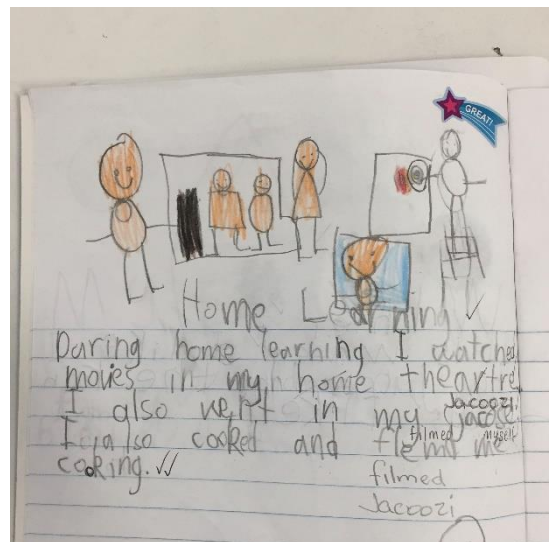 GREAT!
Home Learning ✓
During home learning I watched
movies in my home theartre
I also went in my jacose Jacoozi.
I also cooked and flemd me filmed myself
cooking. ✓✓
filmed
Jacoozi